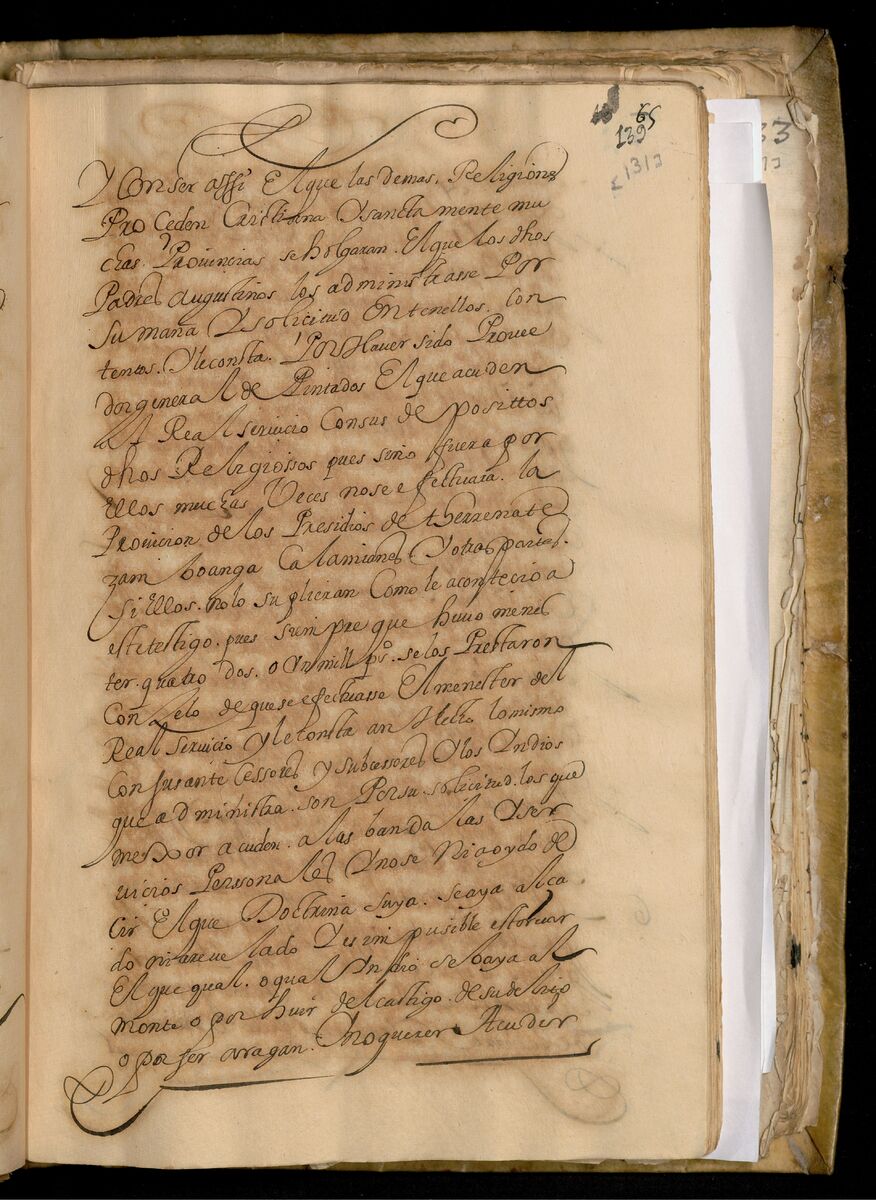 65
139
[131]
Y Con ser assi El que las demas. Religiones
Proceden Cristiana Y sancta mente mu
chas. Prouincias se holgaran. El que los dhos
Padres Augustinos los administrasse Por
su maña Y solicitud En tenellos. con
tentos. Y le consta. Por Hauer sido Provee
dor general de Pintados El que acuden
al Real seruicio Con sus de posittos
dhos Religiossos pues sino fuera por
Ellos muchas Veces no se efectuara. la
Prouicion de los Presidios de therrenate
zamboanga Calamianes Y otras partes.
si Ellos. no lo suplieran Como le acontecio a
este testigo. pues siempre que huuo menes
ter. quatro dos. o Un mill ps. se los Prestaron
Con Zelo de que se efectuasse El menester del
Real Seruicio y le consta an Hecho lo mismo
Con sus ante cessores y subcessores Y los Yndios
que administra. son Por su. solicitud. los que
mexor acuden. a las bandalas Y ser
uicios Perssonales Y no se Ni a oydo de
cir El que Doctrina suya. se aya alca
do ni a reuelado Y es imposible estoruar
El que qual. o qual Yndio se baya al
monte o por huir del castigo. de su delito
o por ser aragan. Y no querer Acudir